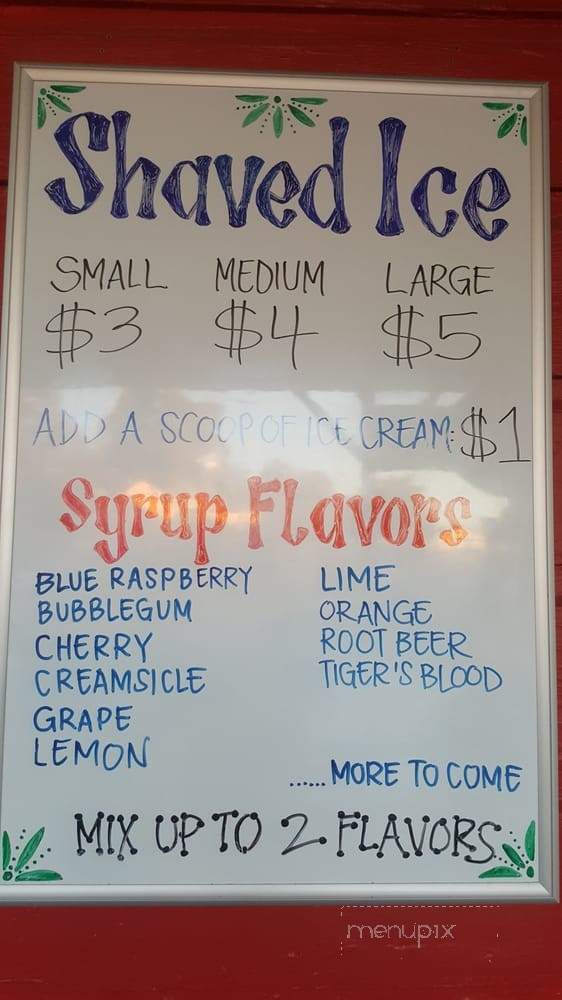 Shaved Ice
SMALL MEDIUM LARGE
$3 $4 $5
ADD A SCOOP OF ICE CREAM: $1
Syrup Flavors
BLUE RASPBERRY
BUBBLEGUM
CHERRY
CREAMSICLE
GRAPE
LEMON
LIME
ORANGE
ROOT BEER
TIGER'S BLOOD
......MORE TO COME
MIX UP TO 2 FLAVORS
menupix